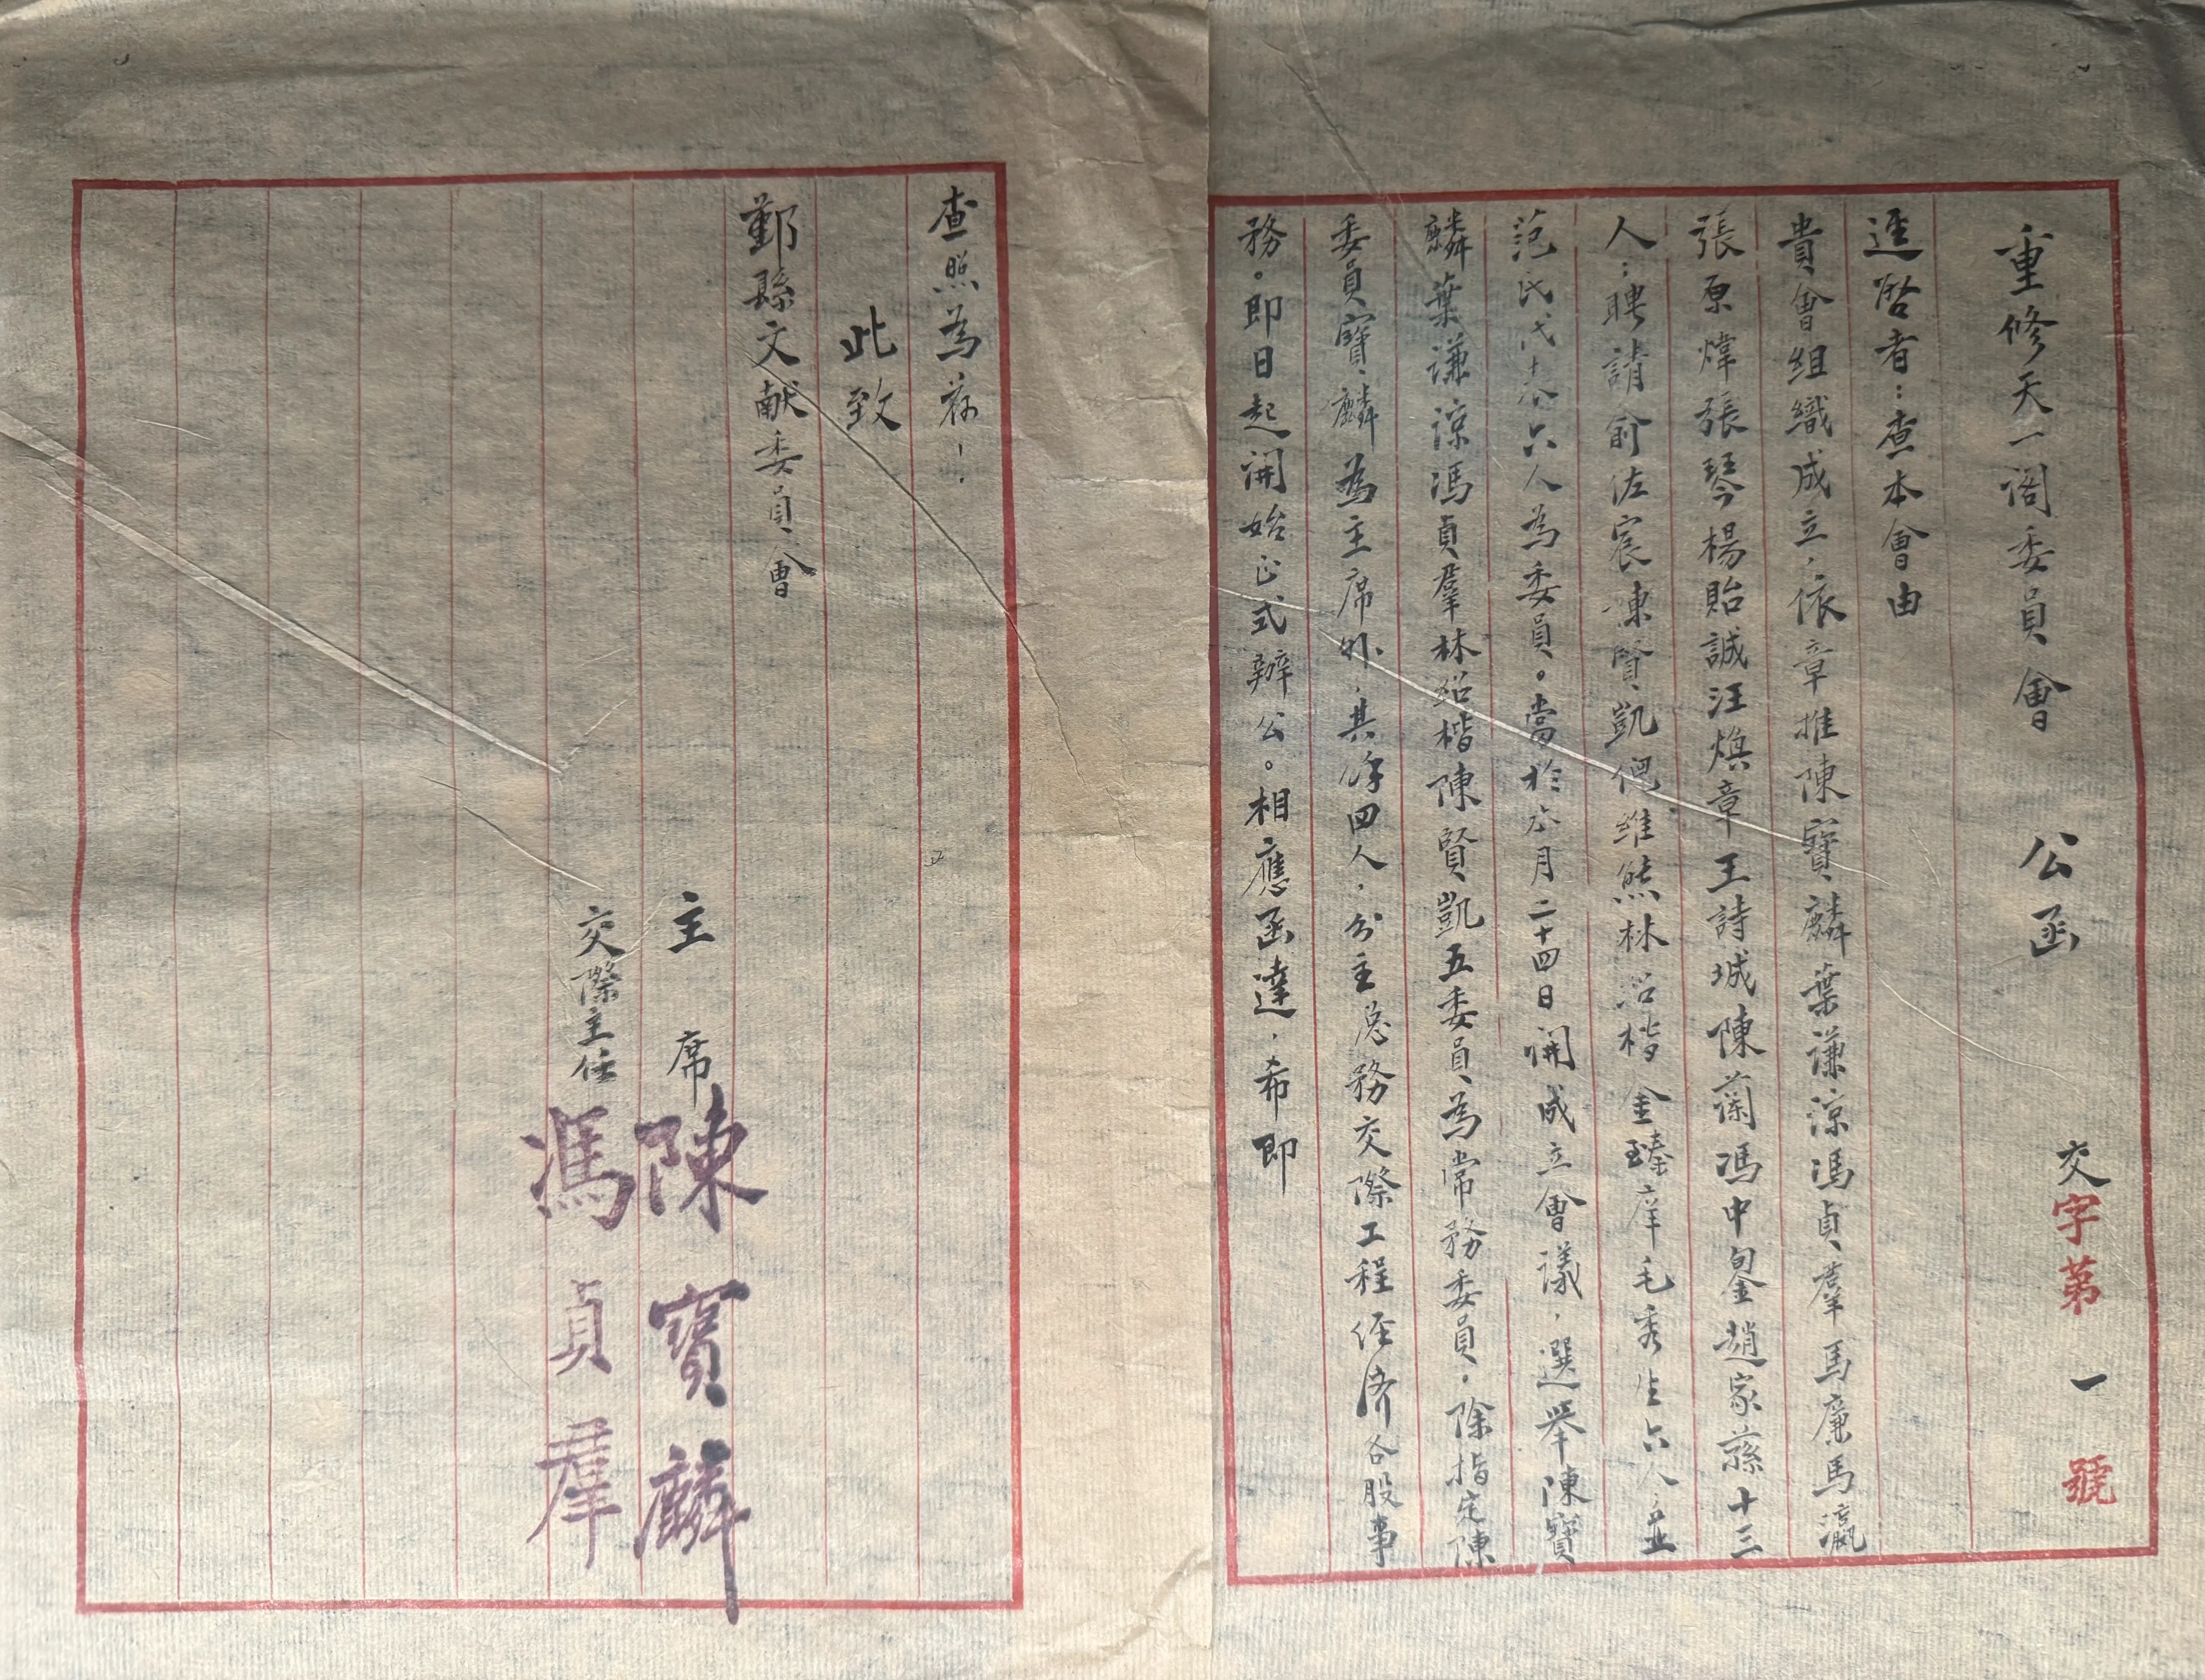 重修天一閣委員會　公函　交字第一號
逕啓者：查本會由
貴會組織成立，依章推陳寶麟葉謙諒馮貞羣馬廉馬瀛
張原煒張琴楊貽誠汪煥章王詩城陳蘭馮中鋆趙家蓀十三
人；聘請俞佐宸陳賢凱倪維熊林紹楷金臻庠毛秀生六人；並
范氏代表六人為委員。當於本月二十四日開成立會議，選舉陳寶
麟葉謙諒馮貞羣林紹楷陳賢凱五委員為常務委員，除指定陳
委員寶麟為主席外，其餘四人，分主總務交際工程經濟各股事
務。即日起開始正式辦公。相應函達，希即
查照為荷！
此致
鄞縣文献委員會
主席　陳寶麟
交際主任　馮貞羣